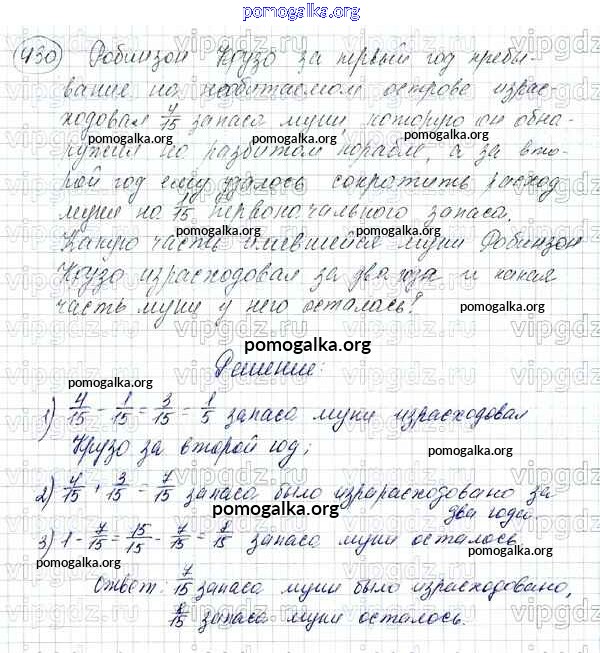 pomogalka.org
430 Робинзон Крузо за первый год пребы-
вание на необитаемом острове израс-
ходовал 4/15 запаса муки, которую он обна-
pomogalka.org pomogalka.org
ружил на разбитом корабле, а за вто-
рой год ему удалось сократить расход
муки на 1/15 первоначального запаса.
Какую часть имевшейся муки Робинзон
Крузо израсходовал за два года и какая
часть муки у него осталась?
pomogalka.org
pomogalka.org
Решение:
pomogalka.org
1) 4/15 - 1/15 = 3/15 = 1/5 запаса муки израсходовал
Крузо за второй год;
pomogalka.org
2) 4/15 + 3/15 = 7/15 запаса было израрасходовано за
два года.
pomogalka.org
3) 1 - 7/15 = 15/15 - 7/15 = 8/15 запаса муки осталось
pomogalka.org pomogalka.org
Ответ: 7/15 запаса муки было израсходовано,
8/15 запаса муки осталось.
pomogalka.org